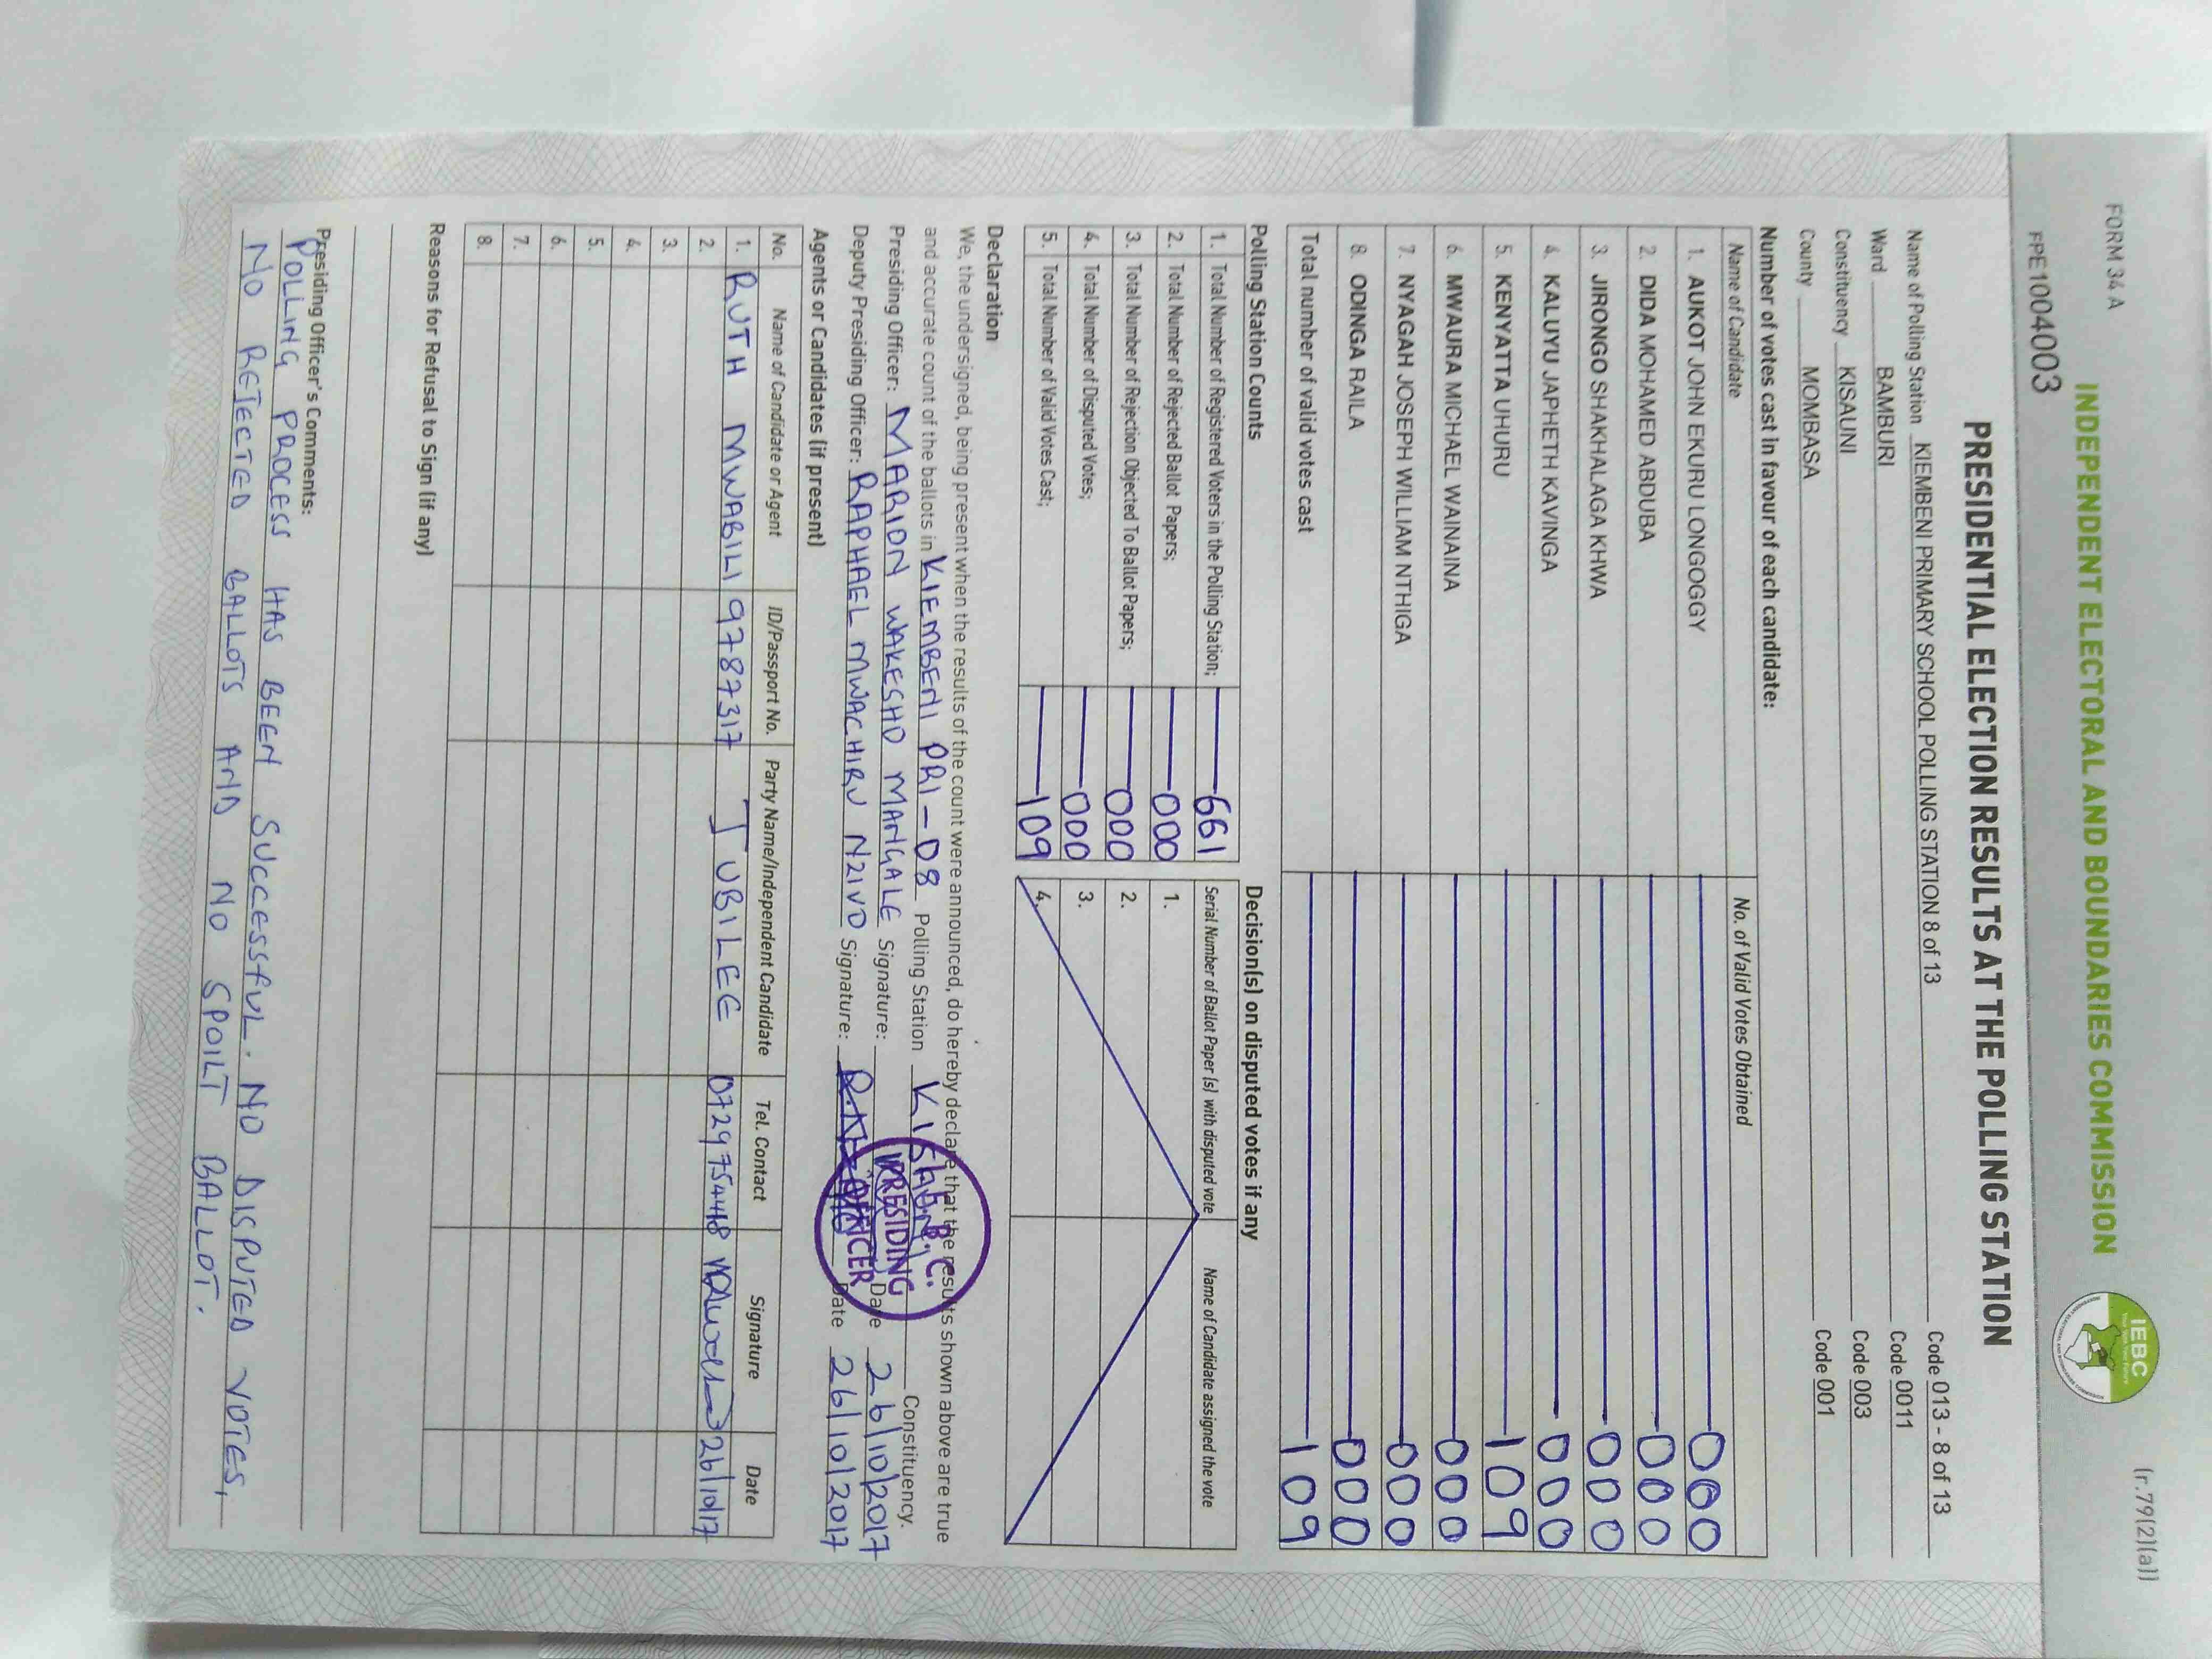 FORM 34 A
(r.79(2)(a))
INDEPENDENT ELECTORAL AND BOUNDARIES COMMISSION
IEBC
FPE1004003
PRESIDENTIAL ELECTION RESULTS AT THE POLLING STATION
Name of Polling Station KIEMBENI PRIMARY SCHOOL POLLING STATION 8 of 13 Code 013 - 8 of 13
Ward BAMBURI Code 0011
Constituency KISAUNI Code 003
County MOMBASA Code 001
Number of votes cast in favour of each candidate:
Name of Candidate No. of Valid Votes Obtained
1. AUKOT JOHN EKURU LONGOGGY 000
2. DIDA MOHAMED ABDUBA 000
3. JIRONGO SHAKHALAGA KHWA 000
4. KALUYU JAPHETH KAVINGA 000
5. KENYATTA UHURU 109
6. MWAURA MICHAEL WAINAINA 000
7. NYAGAH JOSEPH WILLIAM NTHIGA 000
8. ODINGA RAILA 000
Total number of valid votes cast 109
Polling Station Counts
1. Total Number of Registered Voters in the Polling Station; 661
2. Total Number of Rejected Ballot Papers; 000
3. Total Number of Rejection Objected To Ballot Papers; 000
4. Total Number of Disputed Votes; 000
5. Total Number of Valid Votes Cast; 109
Decision(s) on disputed votes if any
Serial Number of Ballot Paper (s) with disputed vote Name of Candidate assigned the vote
1.
2.
3.
4.
Declaration
We, the undersigned, being present when the results of the count were announced, do hereby declare that the results shown above are true
and accurate count of the ballots in KIEMBENI PRI - 08 Polling Station KISAUNI Constituency.
Presiding Officer: MARION WAKESHO MANGALE Signature: Date 26/10/2017
Deputy Presiding Officer: RAPHAEL MWACHIRU NZIVO Signature: Date 26/10/2017
PRESIDING
OFFICER
Agents or Candidates (if present)
No. Name of Candidate or Agent ID/Passport No. Party Name/Independent Candidate Tel. Contact Signature Date
1. RUTH MWABILI 9787317 JUBILEE 0729754418 26/10/17
2.
3.
4.
5.
6.
7.
8.
Reasons for Refusal to Sign (if any)
Presiding Officer's Comments:
POLLING PROCESS HAS BEEN SUCCESSFUL. NO DISPUTED VOTES,
NO REJECTED BALLOTS AND NO SPOILT BALLOT.